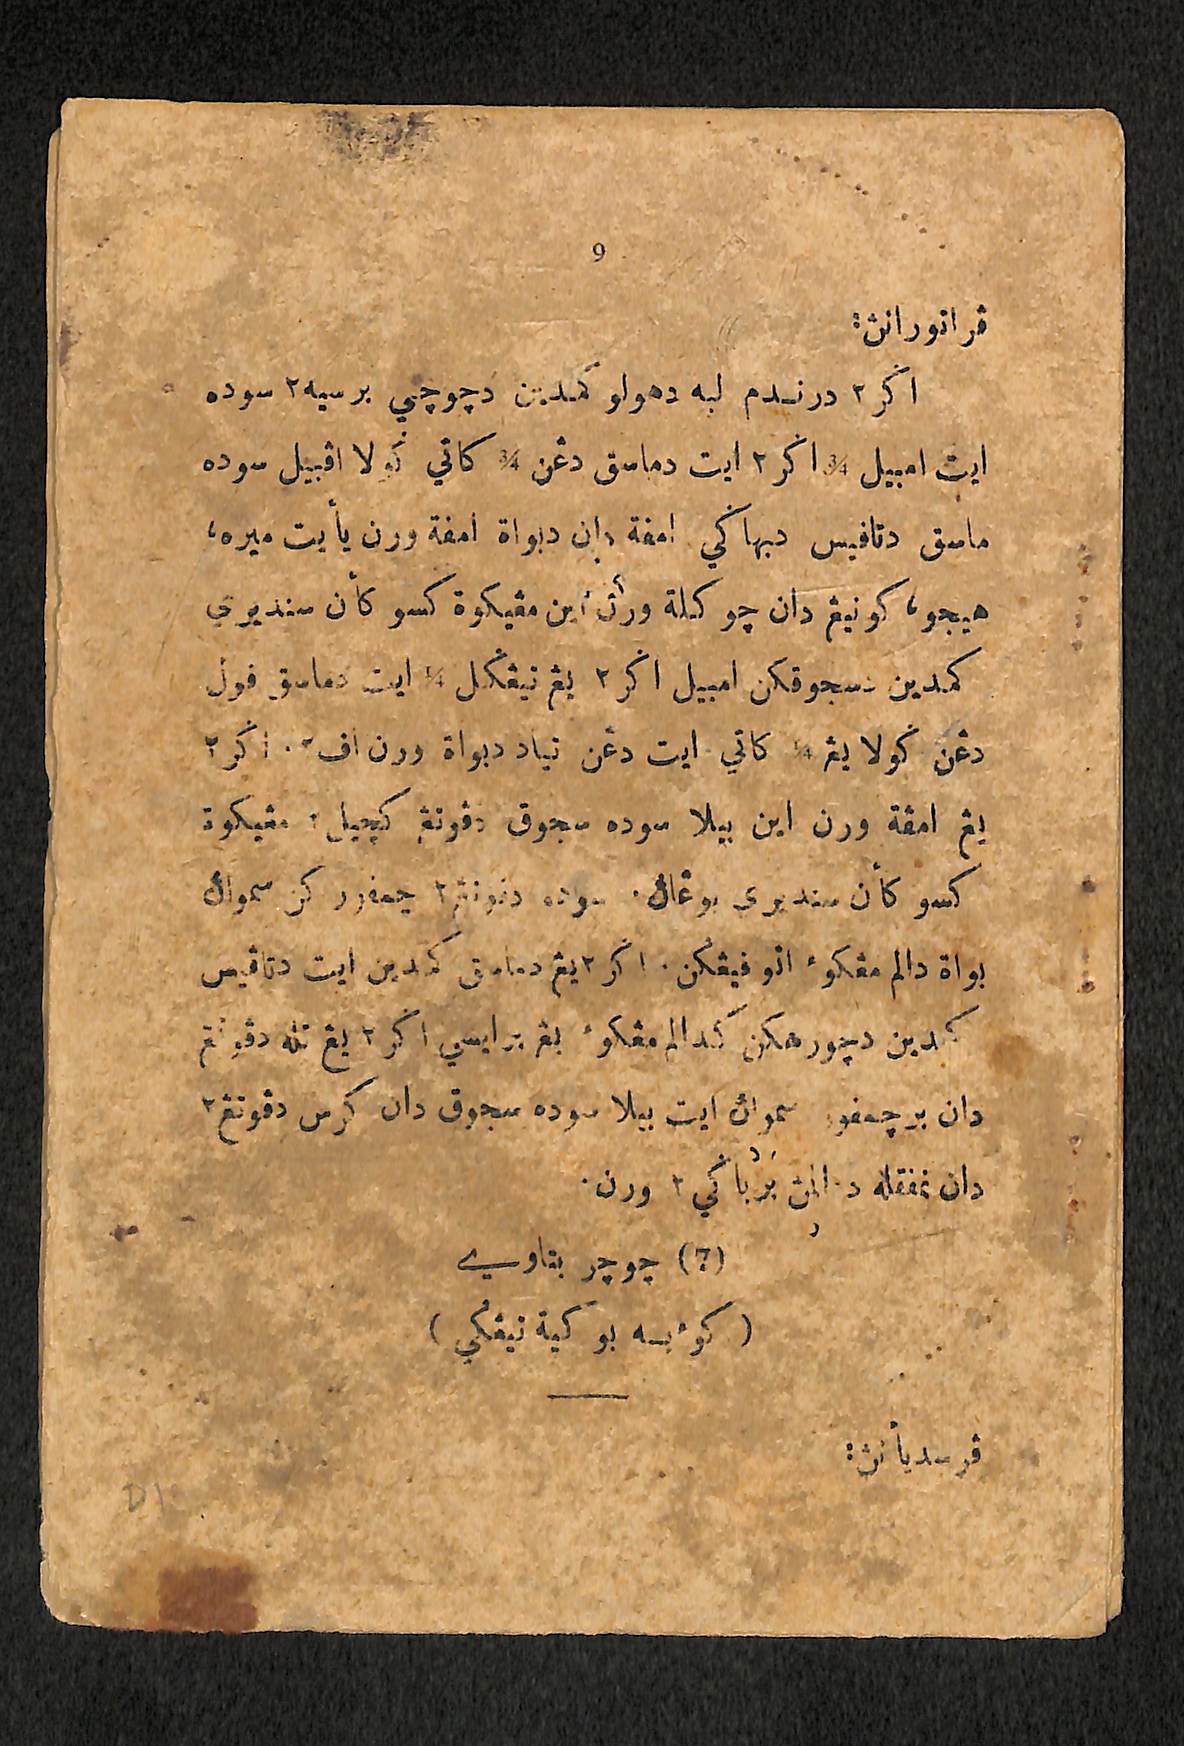 9
ڤراتورانڽ:
اݢر٢ درندم لبه دهولو کمدين دچوچي برسيه٢ سوده
ايت امبيل ¾ اݢر٢ ايت دماسق دڠن ¾ کاتي ݢولا اڤبيل سوده
ماسق دتاڤيس دبهاݢي امڤة دان دبواة امڤة ورن يأيت ميره،
هيجو، کونيڠ دان چوکلة ورنڽ اين مڠيکوة کسوکأن سنديري
کمدين دسجوقکن امبيل اݢر٢ يڠ تيڠݢل ¼ ايت دماسق ڤول
دڠن ݢولا يڠ ¼ کاتي ايت دڠن تياد دبواة ورن اڤ٢. اݢر٢
يڠ امڤة ورن اين بيلا سوده سجوق دڤوتڠ کچيل٢ مڠيکوة
کسوکأن سنديري بوڠاڽ. سوده دڤوتڠ٢ چمڤورکن سمواڽ
بواة دالم مڠکوء اتو ڤيڠݢن. اݢر٢ يڠ دماسق کمدين ايت دتاڤيس
کمدين دچورهکن کدالم مڠکوء يڠ برايسي اݢر٢ يڠ تله دڤوتڠ
دان برچمڤور سمواڽ ايت بيلا سوده سجوق دان کرس دڤوتڠ٢
دان نمڤقله ددالمڽ برباݢي٢ ورن.
(7) چوچر بتاوي
(کوءيه بوکية تيڠݢي)
ڤرسديأنڽ: